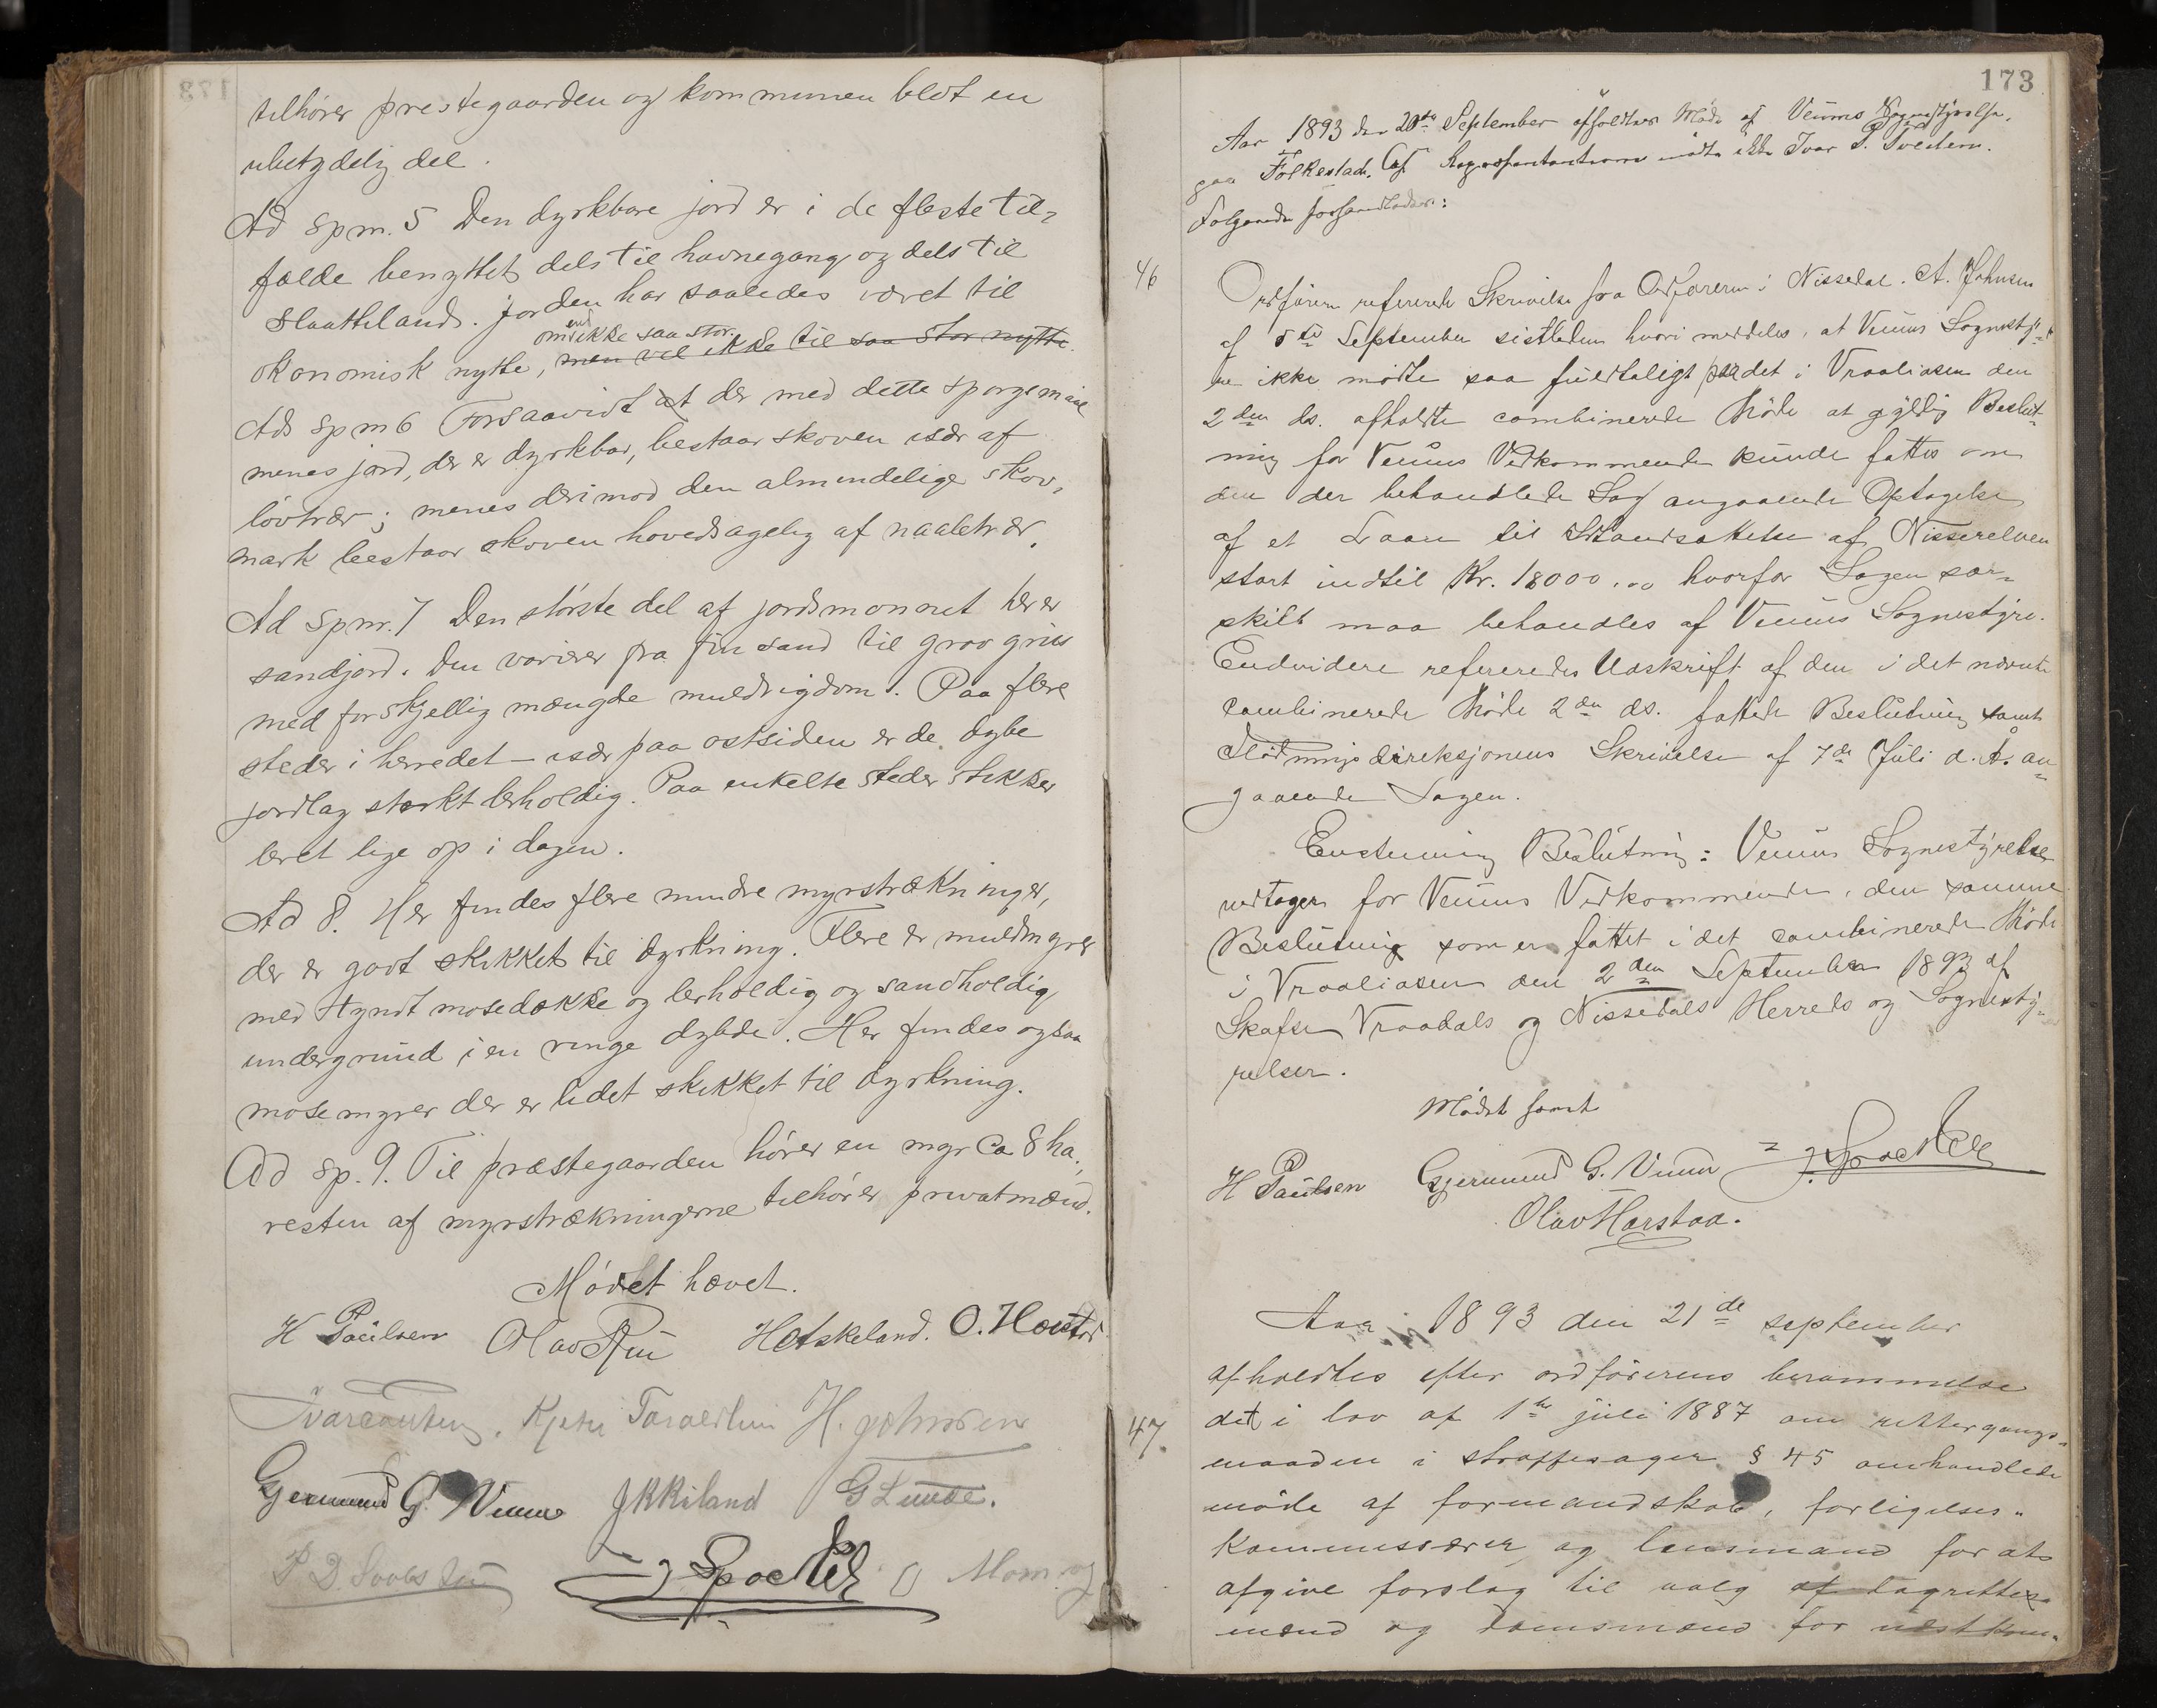 tilhører prestegaarden og kommunen blot en
ubetydelig del.
Ad spm. 5 Den dyrkbare jord er i de fleste til-
fælde benyttet dels til havnegang og dels til
slaatteland. Jorden har saaledes været til
om end ikke saa stor.
økonomisk nytte, men vel ikke til saa stor nytte.
Ad spm 6 Forsaavidt at der med dette spørgsmaal
menes jord, der er dyrkbar, bestaar skoven især af
løvtrær; menes derimod den almindelige skov-
mark bestaar skoven hovedsagelig af naaletrær.
Ad spm. 7 Den største del af jordsmonnet her er
sandjord. Den varierer fra fin sand til grov grus
med forskjellig mængde muldrigdom. Paa flere
steder i herredet – især paa østsiden er de dybe
jordlag sterkt lerholdig. Paa enkelte steder stikker
leret lige op i dagen.
Ad 8. Her findes flere mindre myrstrækninger,
der er godt skikket til dyrkning. Flere er muldmyrer
med tyndt mosedække og lerholdig og sandholdig
undergrund i en ringe dybde. Her findes ogsaa
mosemyrer der er lidet skikket til dyrkning.
Ad sp. 9. Til præstegaarden hører en myr ca 8 ha.,
resten af myrstrækningerne tilhører privatmænd.
Mødet hævet.
H Paulsen Olav H. O.
Kjetil H. Johnsen
Gjermund G. Veum J K Kiland G Lunde.
P D.
173
Aar 1893 den 20de September afholdtes Møde af Veums Sognestyrelse,
paa Folkestad. Af Repræsentanterne mødte ikke Ivar T. Tveiten.
Følgende forhandledes:
46
Ordføren refererede Skrivelse fra Ordføreren i Nissedal A. Johnsen
af 5te September sistleden hvori meddeles, at Veums Sognesty-
re ikke mødte saa fuldtaligt paa det i Vraaliosen den
2den ds. afholdte combinerede Møde at gyldig Beslut-
ning for Veums Vedkommende kunde fattes om
den der behandlede Sag angaaende Optagelse
af et Laan til Istandsættelse af Nisserelven
stort indtil Kr. 18000.00 hvorfor Sagen sær-
skilt maa behandles af Veums Sognestyre.
Endvidere refereredes Udskrift af den i det nævnte
combinerede Møde 2den ds. fattede Beslutning samt
Flødningsdireksjonens Skrivelse af 7de Juli d. A. an-
gaaende Sagen.
Enstemmig Beslutning: Veums Sognestyrelse
vedtager for Veums Vedkommende, den samme
Beslutning som er fattet i det combinerede Møde
i Vraaliosen den 2den September 1893 af
Skafse Vraadals og Nissedals Herreds og Sognesty-
relser.
Mødet hævet
H Paulsen Gjermund G. Veum
Olav Harstad.
Aar 1893 den 21de september
afholdtes efter ordførerens berammelse
47.
det i lov af 1ste juli 1887 om rettergangs-
maaden i straffesager § 45 omhandlede
møde af formandskab, forligelses-
kommissærer og lensmand for at
afgive forslag til valg af lagrettes-
mænd og domsmænd for næstkom-